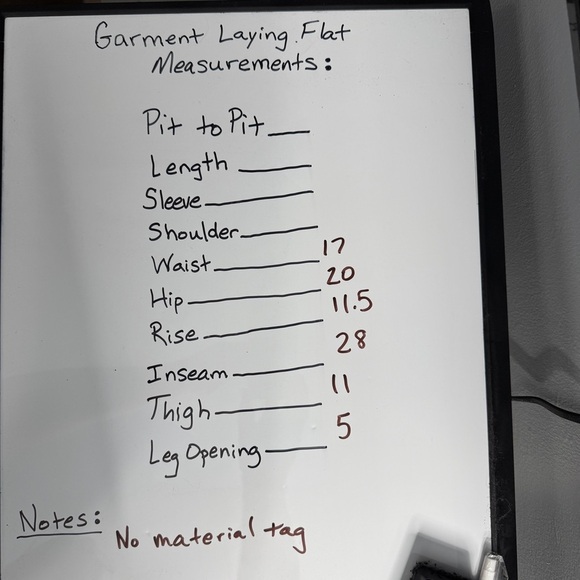 Garment Laying Flat
Measurements:
Pit to Pit
Length
Sleeve
Shoulder
Waist 17
Hip 20
Rise 11.5
Inseam 28
Thigh 11
Leg Opening 5
Notes: No material tag